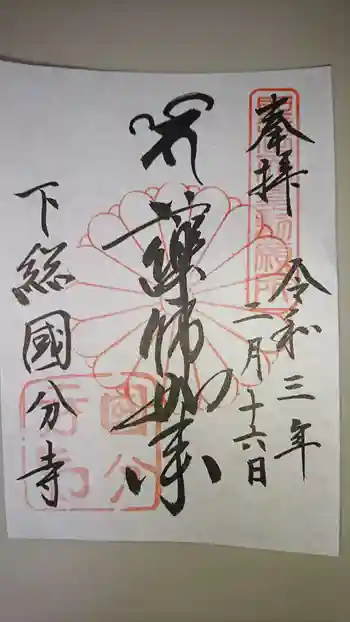 奉拝
令和三年
二月十六日
薬師如来
下総國分寺
國分寺印